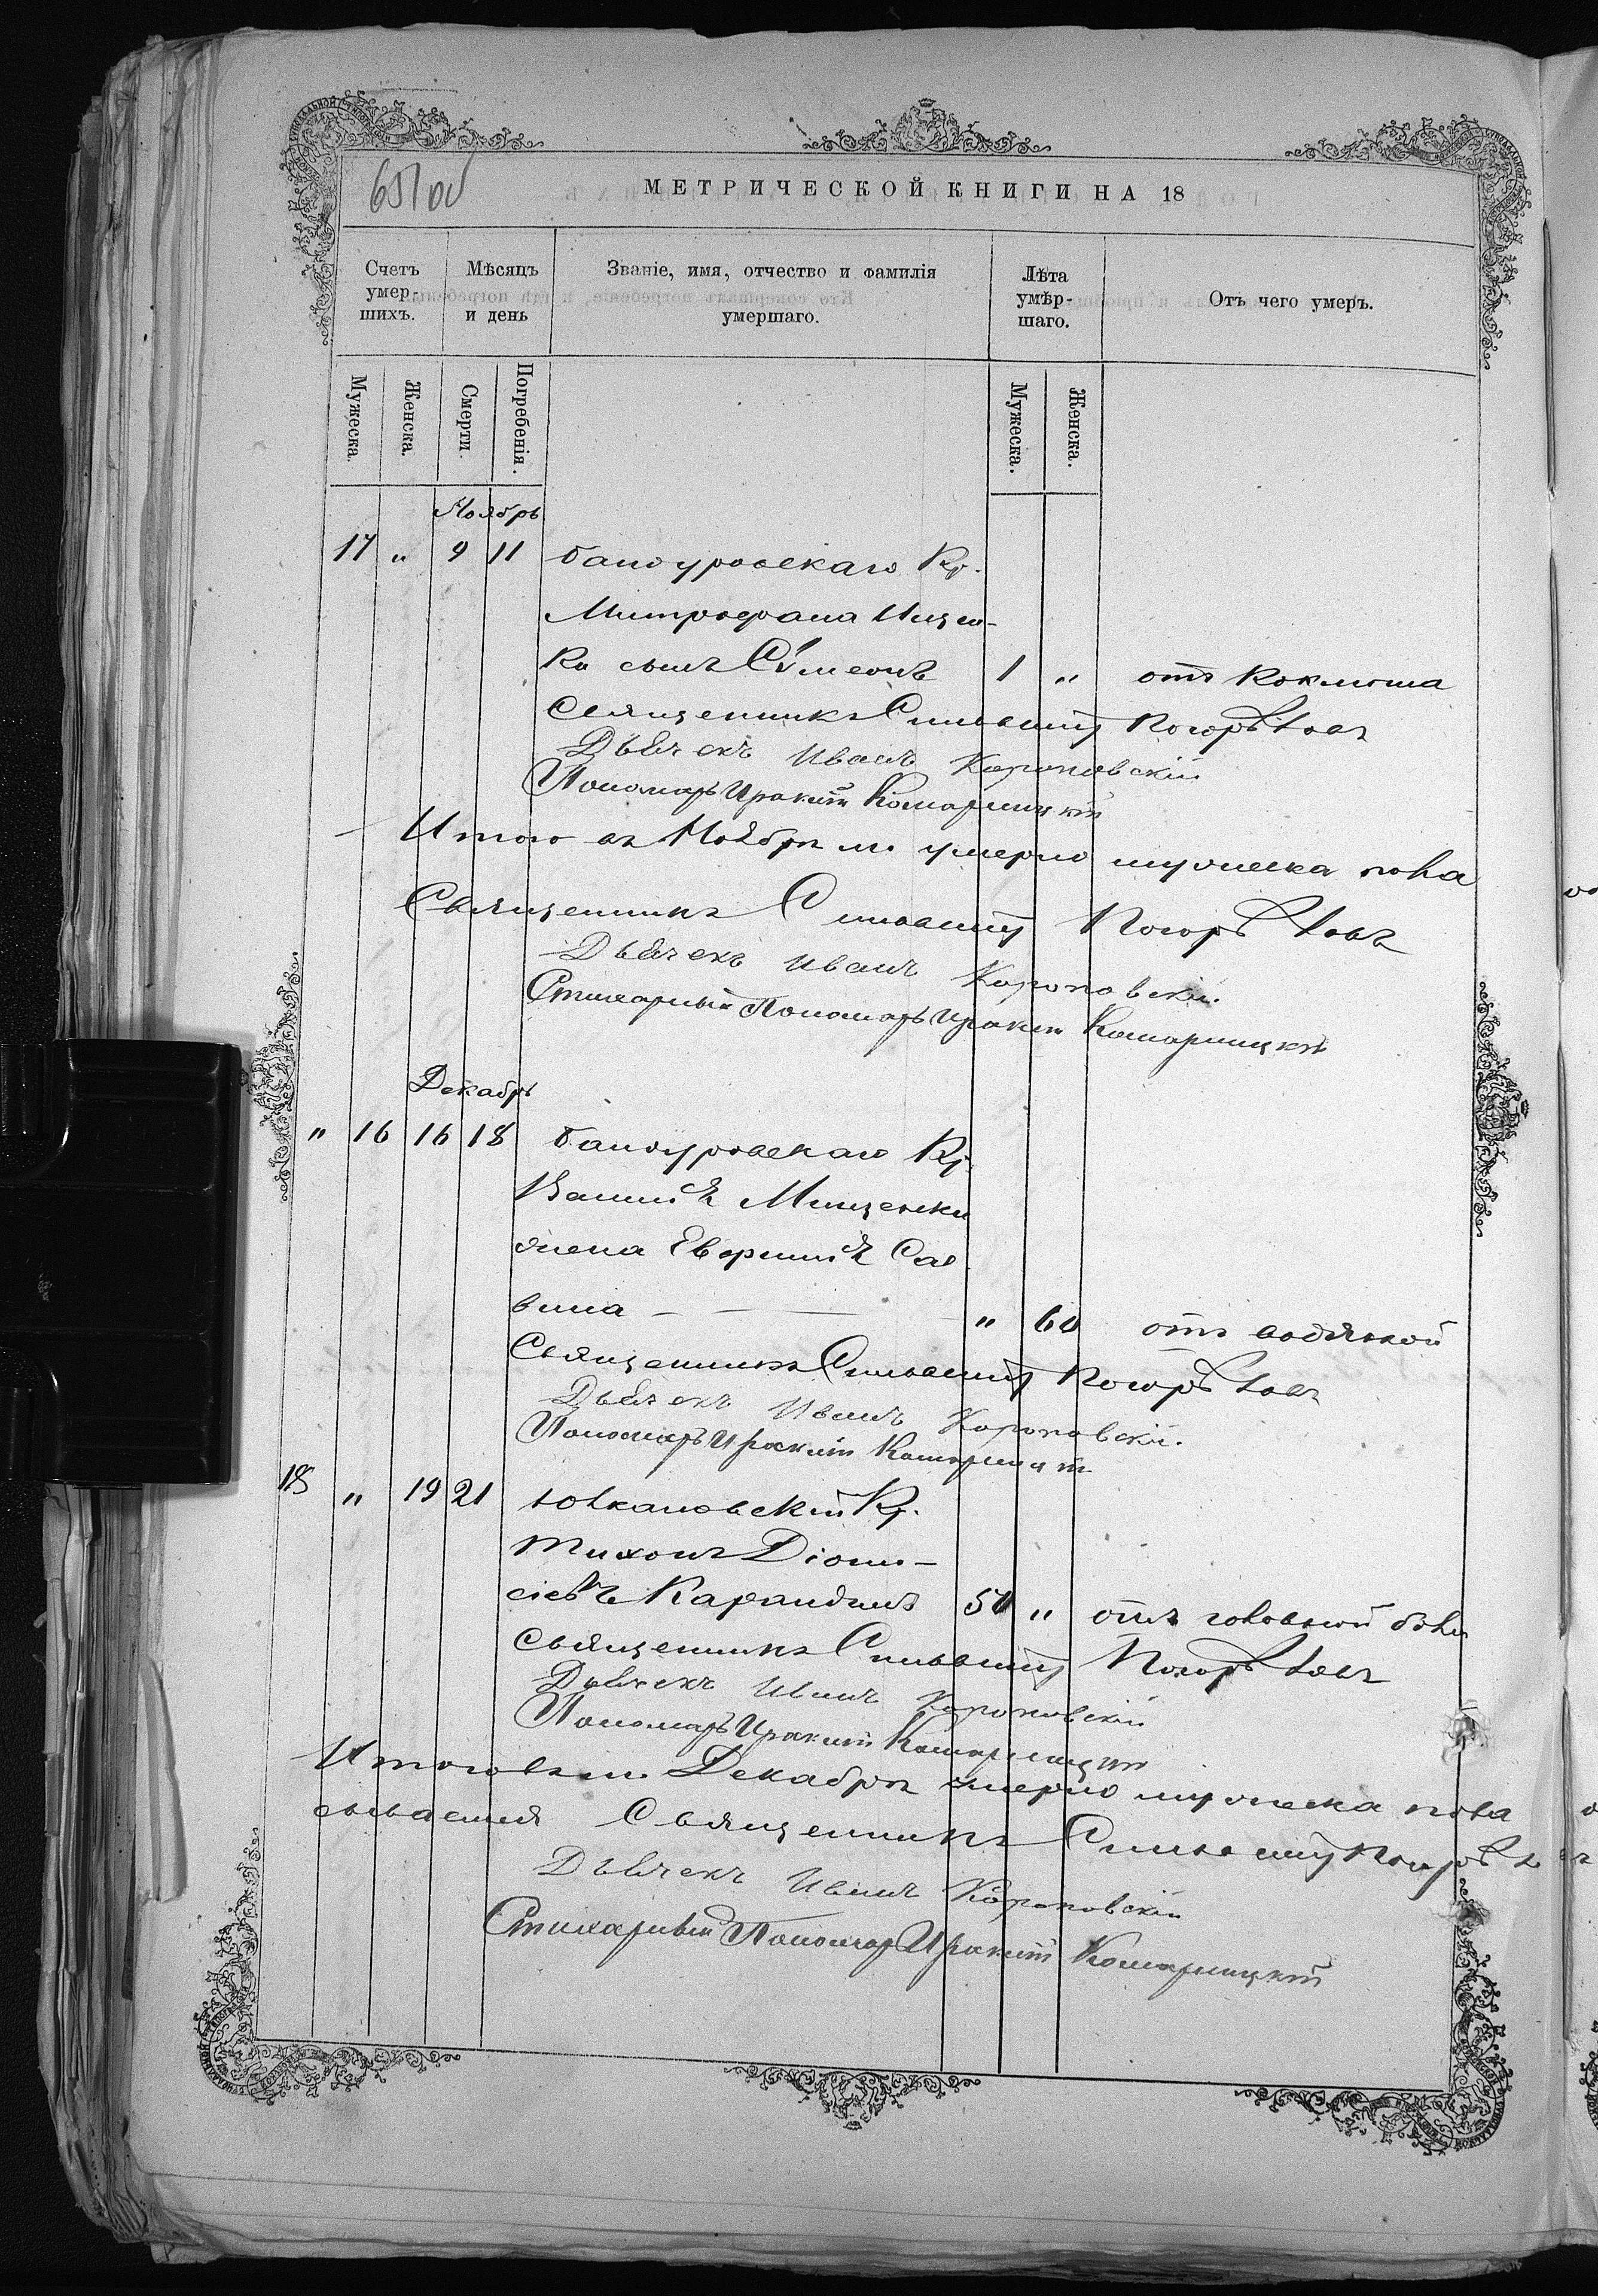 651 об
МЕТРИЧЕСКОЙ КНИГИ НА 18
Счетъ умер-шихъ.
Мѣсяцъ и день
Званіе, имя, отчество и фамилія умершаго.
Лѣта умѣр-шаго.
Отъ чего умеръ.
Мужеска.
Женска.
Смерти.
Погребенія.
Мужеска.
Женска.
Ноябрь
17 " 9 11 Бандуровскаго Кр.
Митрофана Ищен-
ка сынъ Сѵмеонъ 1 " отъ коклюша
Священникъ Погорѣловъ
Дьячекъ Иванъ Короповскій
Пономарь Ираклій Комарницкій
Итого въ Ноябрѣ м. умерло мужеска пола
Священникъ Погорѣловъ
Дьячекъ Иванъ Короповскій
Стихарный Пономарь Ираклій Комарницкій
Декабрь
" 16 16 18 Бандуровскаго Кр.
Мищенки
жена Евфиміѧ Сав
вина " 60 отъ водяной
Священникъ Погорѣловъ
Дьячекъ Иванъ Короповскій.
Пономарь Ираклій Комарницкій
18 " 19 21 Юлкановскій Кр.
Тихонъ Діони-
сіевъ 50 " отъ головной боли
Священникъ Погорѣловъ
Дьячекъ Иванъ Короповскій
Пономарь Ираклій Комарницкій
Итого въ м. Декабрѣ умерло мужеска пола
Священникъ
Дьячекъ Иванъ Короповскій
Стихарный Пономарь Ираклій Комарницкій